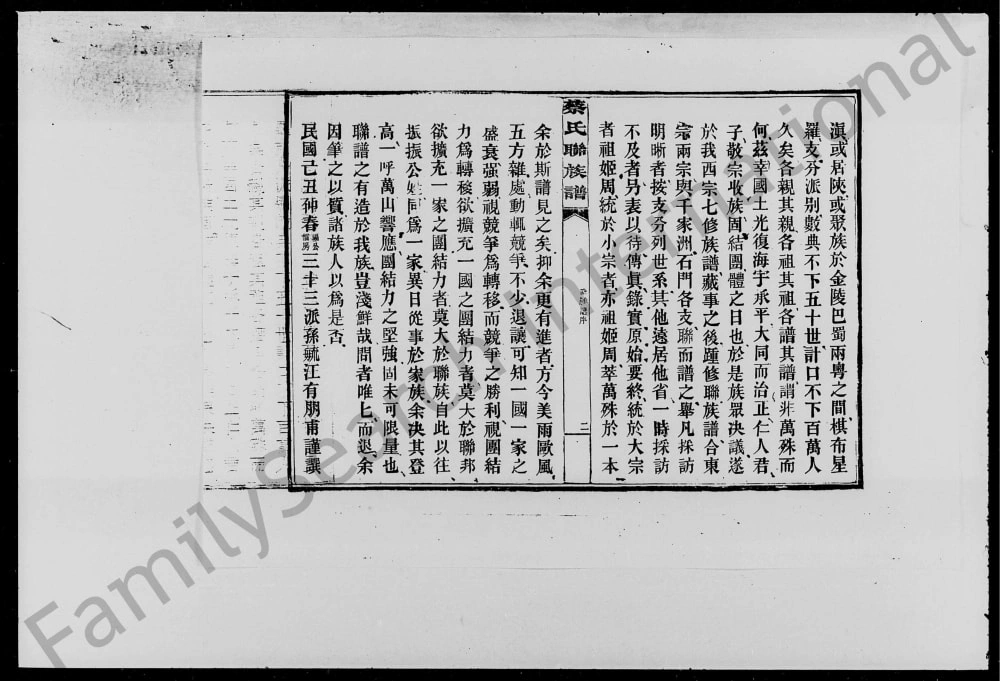 滇或居陝或聚族於金陵巴蜀兩粵之間棋布星
羅支分派別數典不下五十世計口不下百萬人
久矣各親其親各祖其祖各譜其譜謂非萬殊而
何茲幸國土光復海宇承平大同而治正仁人君
子敬宗收族固結團體之日也於是族眾決議遂
於我西宗七修族譜蕆事之後踵修聯族譜合東
宗兩宗與千家洲石門各支聯而譜之舉凡採訪
明晰者按支分列世系其他遠居他省一時採訪
不及者另表以待傳眞錄實原始要終統於大宗
者祖姬周統於小宗者亦祖姬周萃萬殊於一本
蔡氏聯族譜
譜序
二
余於斯譜見之矣抑余更有進者方今美雨歐風
五方雜處動輒競爭不少退讓可知一國一家之
盛衰强弱視競爭爲轉移而競爭之勝利視團結
力爲轉移欲擴充一國之團結力者莫大於聯邦
欲擴充一家之團結力者莫大於聯族自此以往
振振公姓同爲一家異日從事於家族余決其登
高一呼萬山響應團結力之堅強固未可限量也
聯譜之有造於我族豈淺鮮哉聞者唯七而退余
因筆之以質諸族人以爲是否
民國己丑仲春 三十三派孫毓江有朋甫謹譔
FamilySearch International